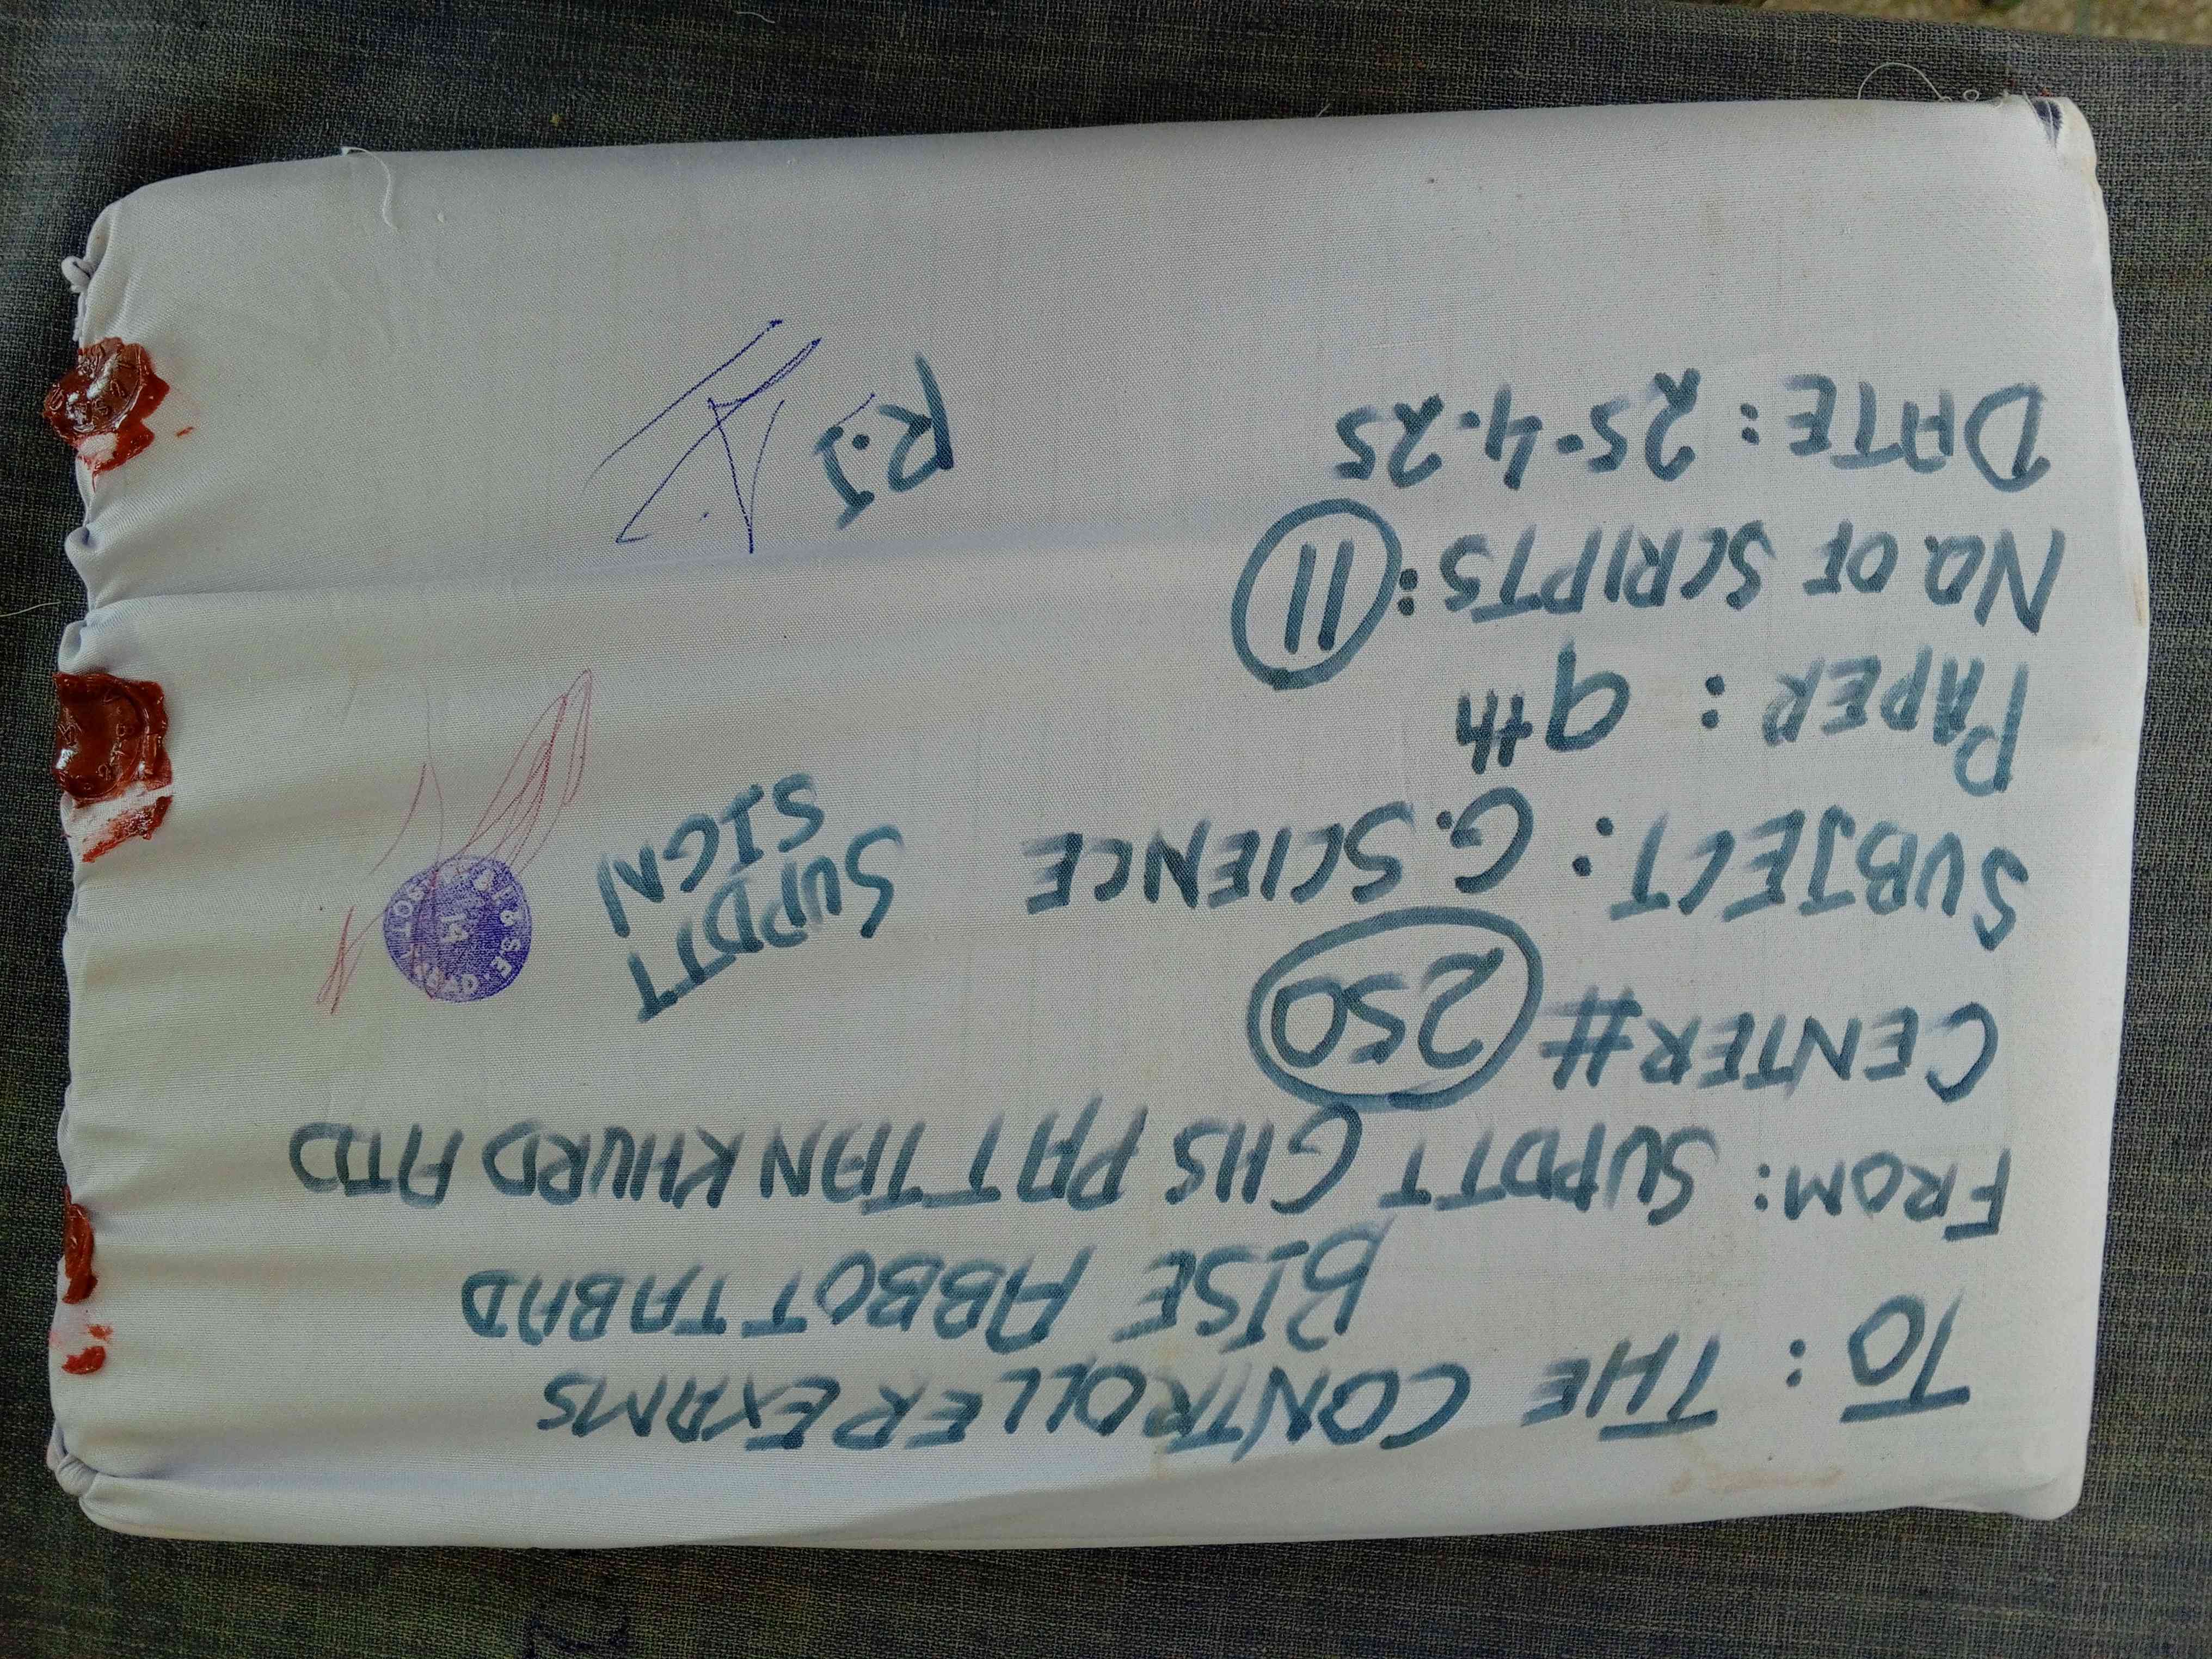 TO: THE CONTROLLER EXAMS
BISE ABBOTTABAD
FROM: SUPDTT GHS PATTAN KHURD ATD
CENTER# 250
SUBJECT: G.SCIENCE
PAPER: 9th
NO. OF SCRIPTS: 11
DATE: 25.4.25
SUPDTT
SIGN
R.I